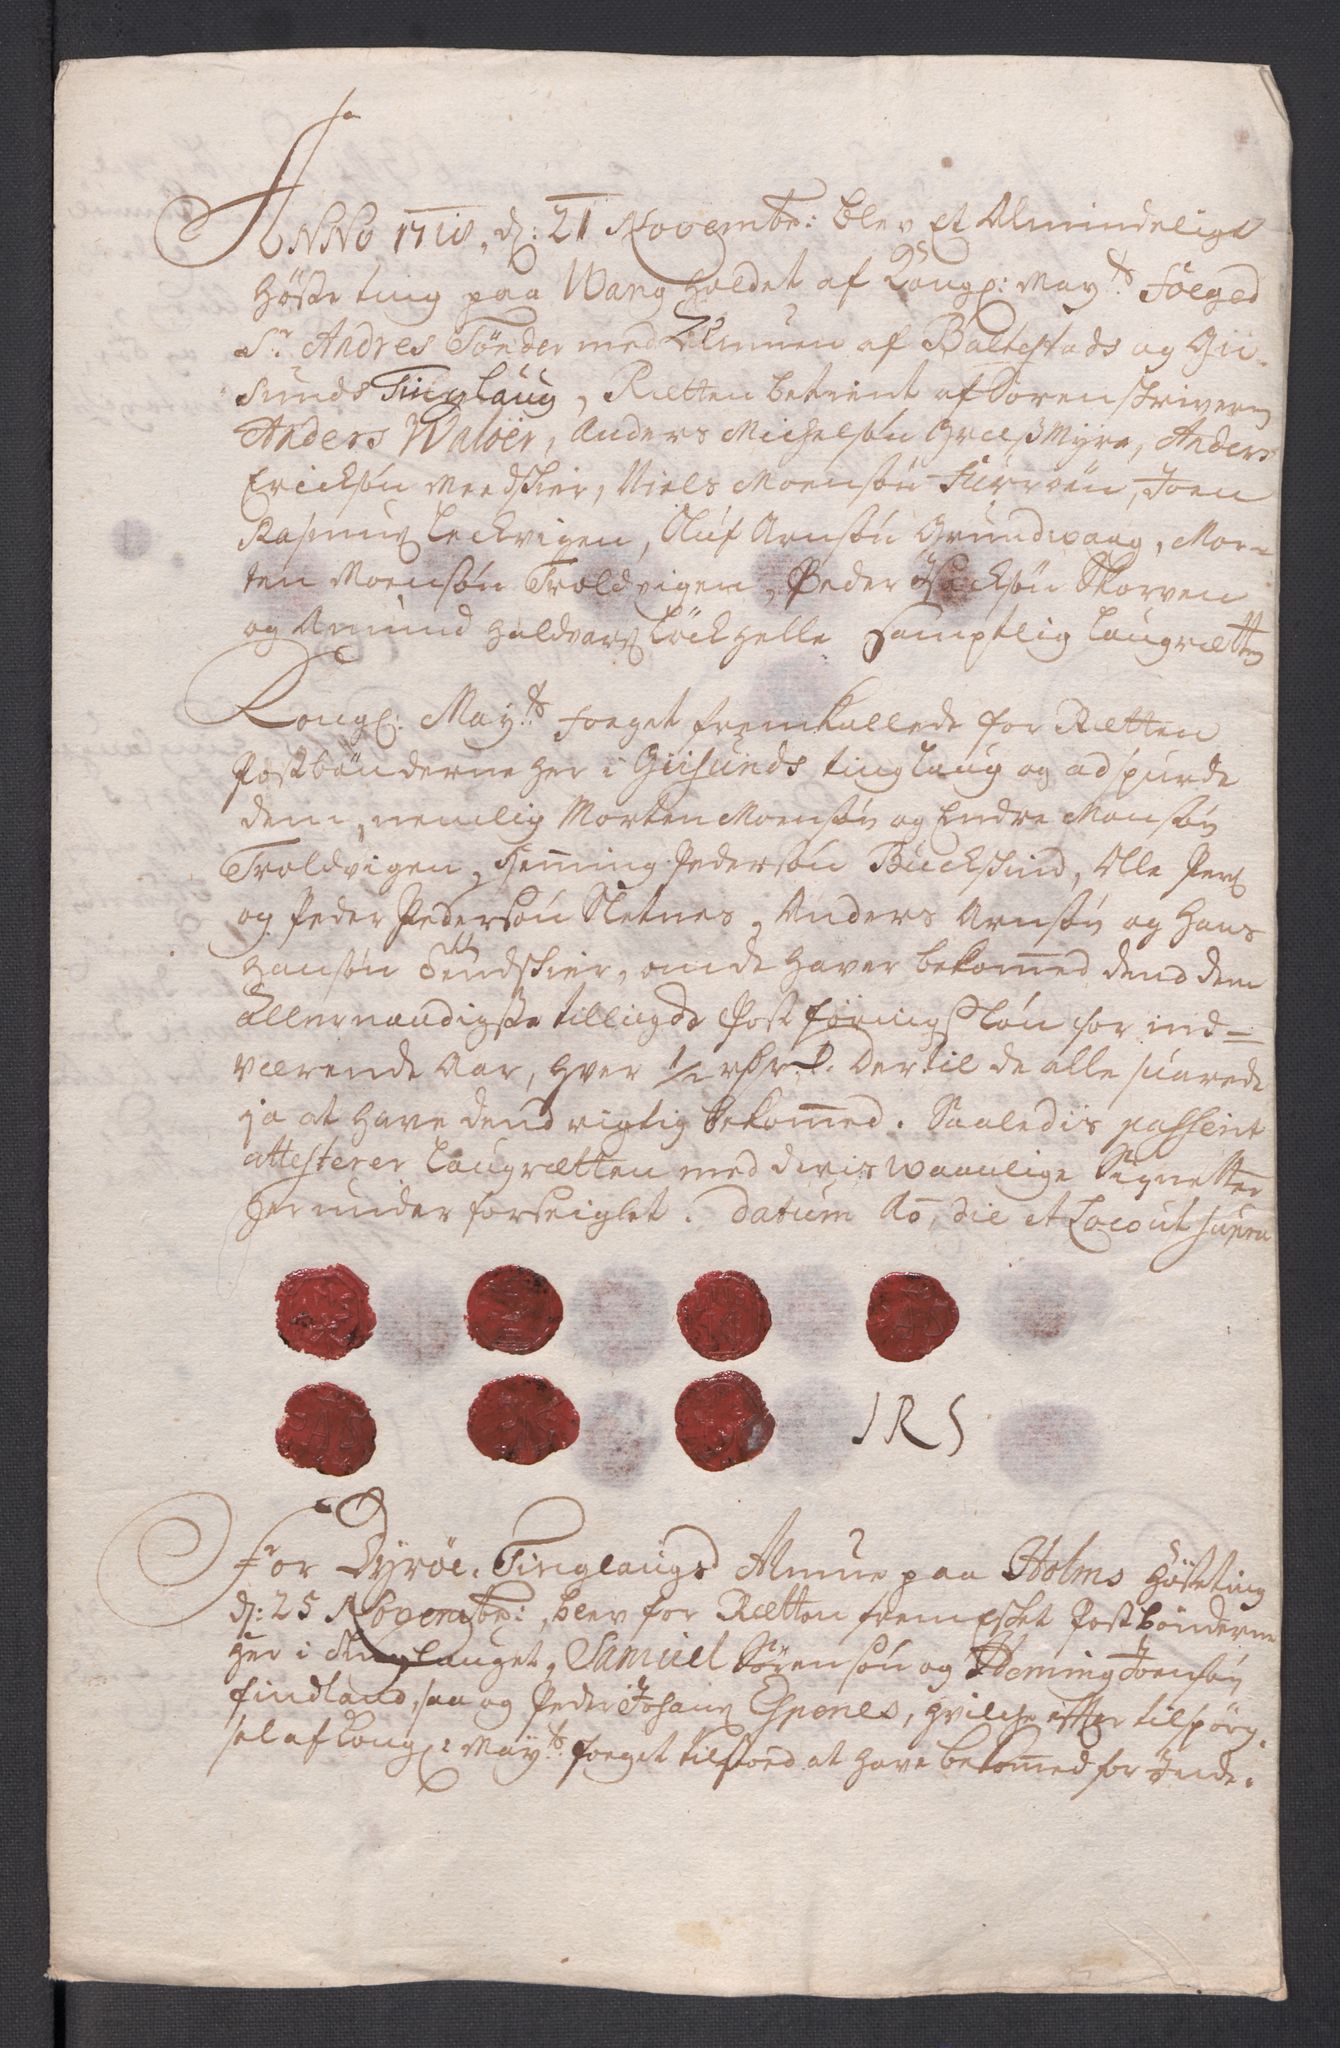 ANNO 1718, d: 21 Novembr: blev et Almindeligt
Høsteting paa Wang holdet af Kongl: May.ts Foeged
Sr. Andres Tønder med Almuen af Baltestads og Gii-
sunds Tinglaug, Rætten betient af Sorenskriveren
Anders Waløer, Anders Michelsøn Græs Myre, Anders
Ericksøn Meedskier, Niels Moensøn Furrøen, Joen
Rasmus Leckvigen, Oluf Arnsøn Grundwaag, Mor-
ten Moensøn Troldvigen, Peder Ericksøn Skorven
og Amund Haldvars Løckhelle samptlig Laugrætten
Kongl: May.ts foeget fremkallede for Rætten
Postbønderne her i Giisunds tinglaug og adspurde
dem, nemlig Morten Moensøn og Endre Monsøn
Troldvigen, Hemming Pedersøn Buckskind, Olle Pers
og Peder Pedersøn Sletnes, Anders Arnsøn og Hans
Hansøn Sundskier, om de haver bekommed dend dem
allernaadigste tillagde Postførings Løn for ind-
værende Aar, hver 1/2 rdr. Dertil de alle suarede
ja at have dend rigtig bekommed. Saaledis passerit
attesterer Laugrætten med deris waanlige Signetter
herunder forseiglet. Datum Ao, die et Loco ut supra
IRS
For Dyrøe Tinglaugs Almue paa Holms Høsteting
d: 25 Novembr: blev for Rætten fremesket Postbønderne
her i tinglauget, Samuel Sørensøn og Fleming Joensøn
Findland, saa og Peder Johans Espenes, hvilche efter tilspørg-
sel af Kongl: May.ts foeget tilstoed at have bekommed for Inde-